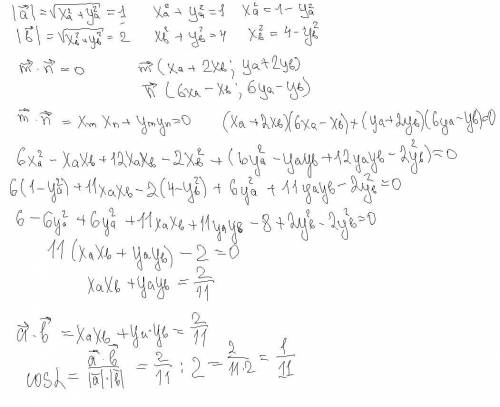 |a⃗| = √(xₐ² + yₐ²) = 1    xₐ² + yₐ² = 1    xₐ² = 1 - yₐ²
|b⃗| = √(x_b² + y_b²) = 2    x_b² + y_b² = 4    x_b² = 4 - y_b²
m⃗ · n⃗ = 0    m⃗ (xₐ + 2x_b; yₐ + 2y_b)
n⃗ (6xₐ - x_b; 6yₐ - y_b)
m⃗ · n⃗ = x_m x_n + y_m y_n = 0    (xₐ + 2x_b)(6xₐ - x_b) + (yₐ + 2y_b)(6yₐ - y_b) = 0
6xₐ² - xₐx_b + 12xₐx_b - 2x_b² + (6yₐ² - yₐy_b + 12yₐy_b - 2y_b²) = 0
6(1 - yₐ²) + 11xₐx_b - 2(4 - y_b²) + 6yₐ² + 11yₐy_b - 2y_b² = 0
6 - 6yₐ² + 6yₐ² + 11xₐx_b + 11yₐy_b - 8 + 2y_b² - 2y_b² = 0
11(xₐx_b + yₐy_b) - 2 = 0
xₐx_b + yₐy_b = 2/11
a⃗ · b⃗ = xₐx_b + yₐ·y_b = 2/11
cosα = (a⃗ · b⃗)/(|a⃗|·|b⃗|) = 2/11 : 2 = 2/(11·2) = 1/11